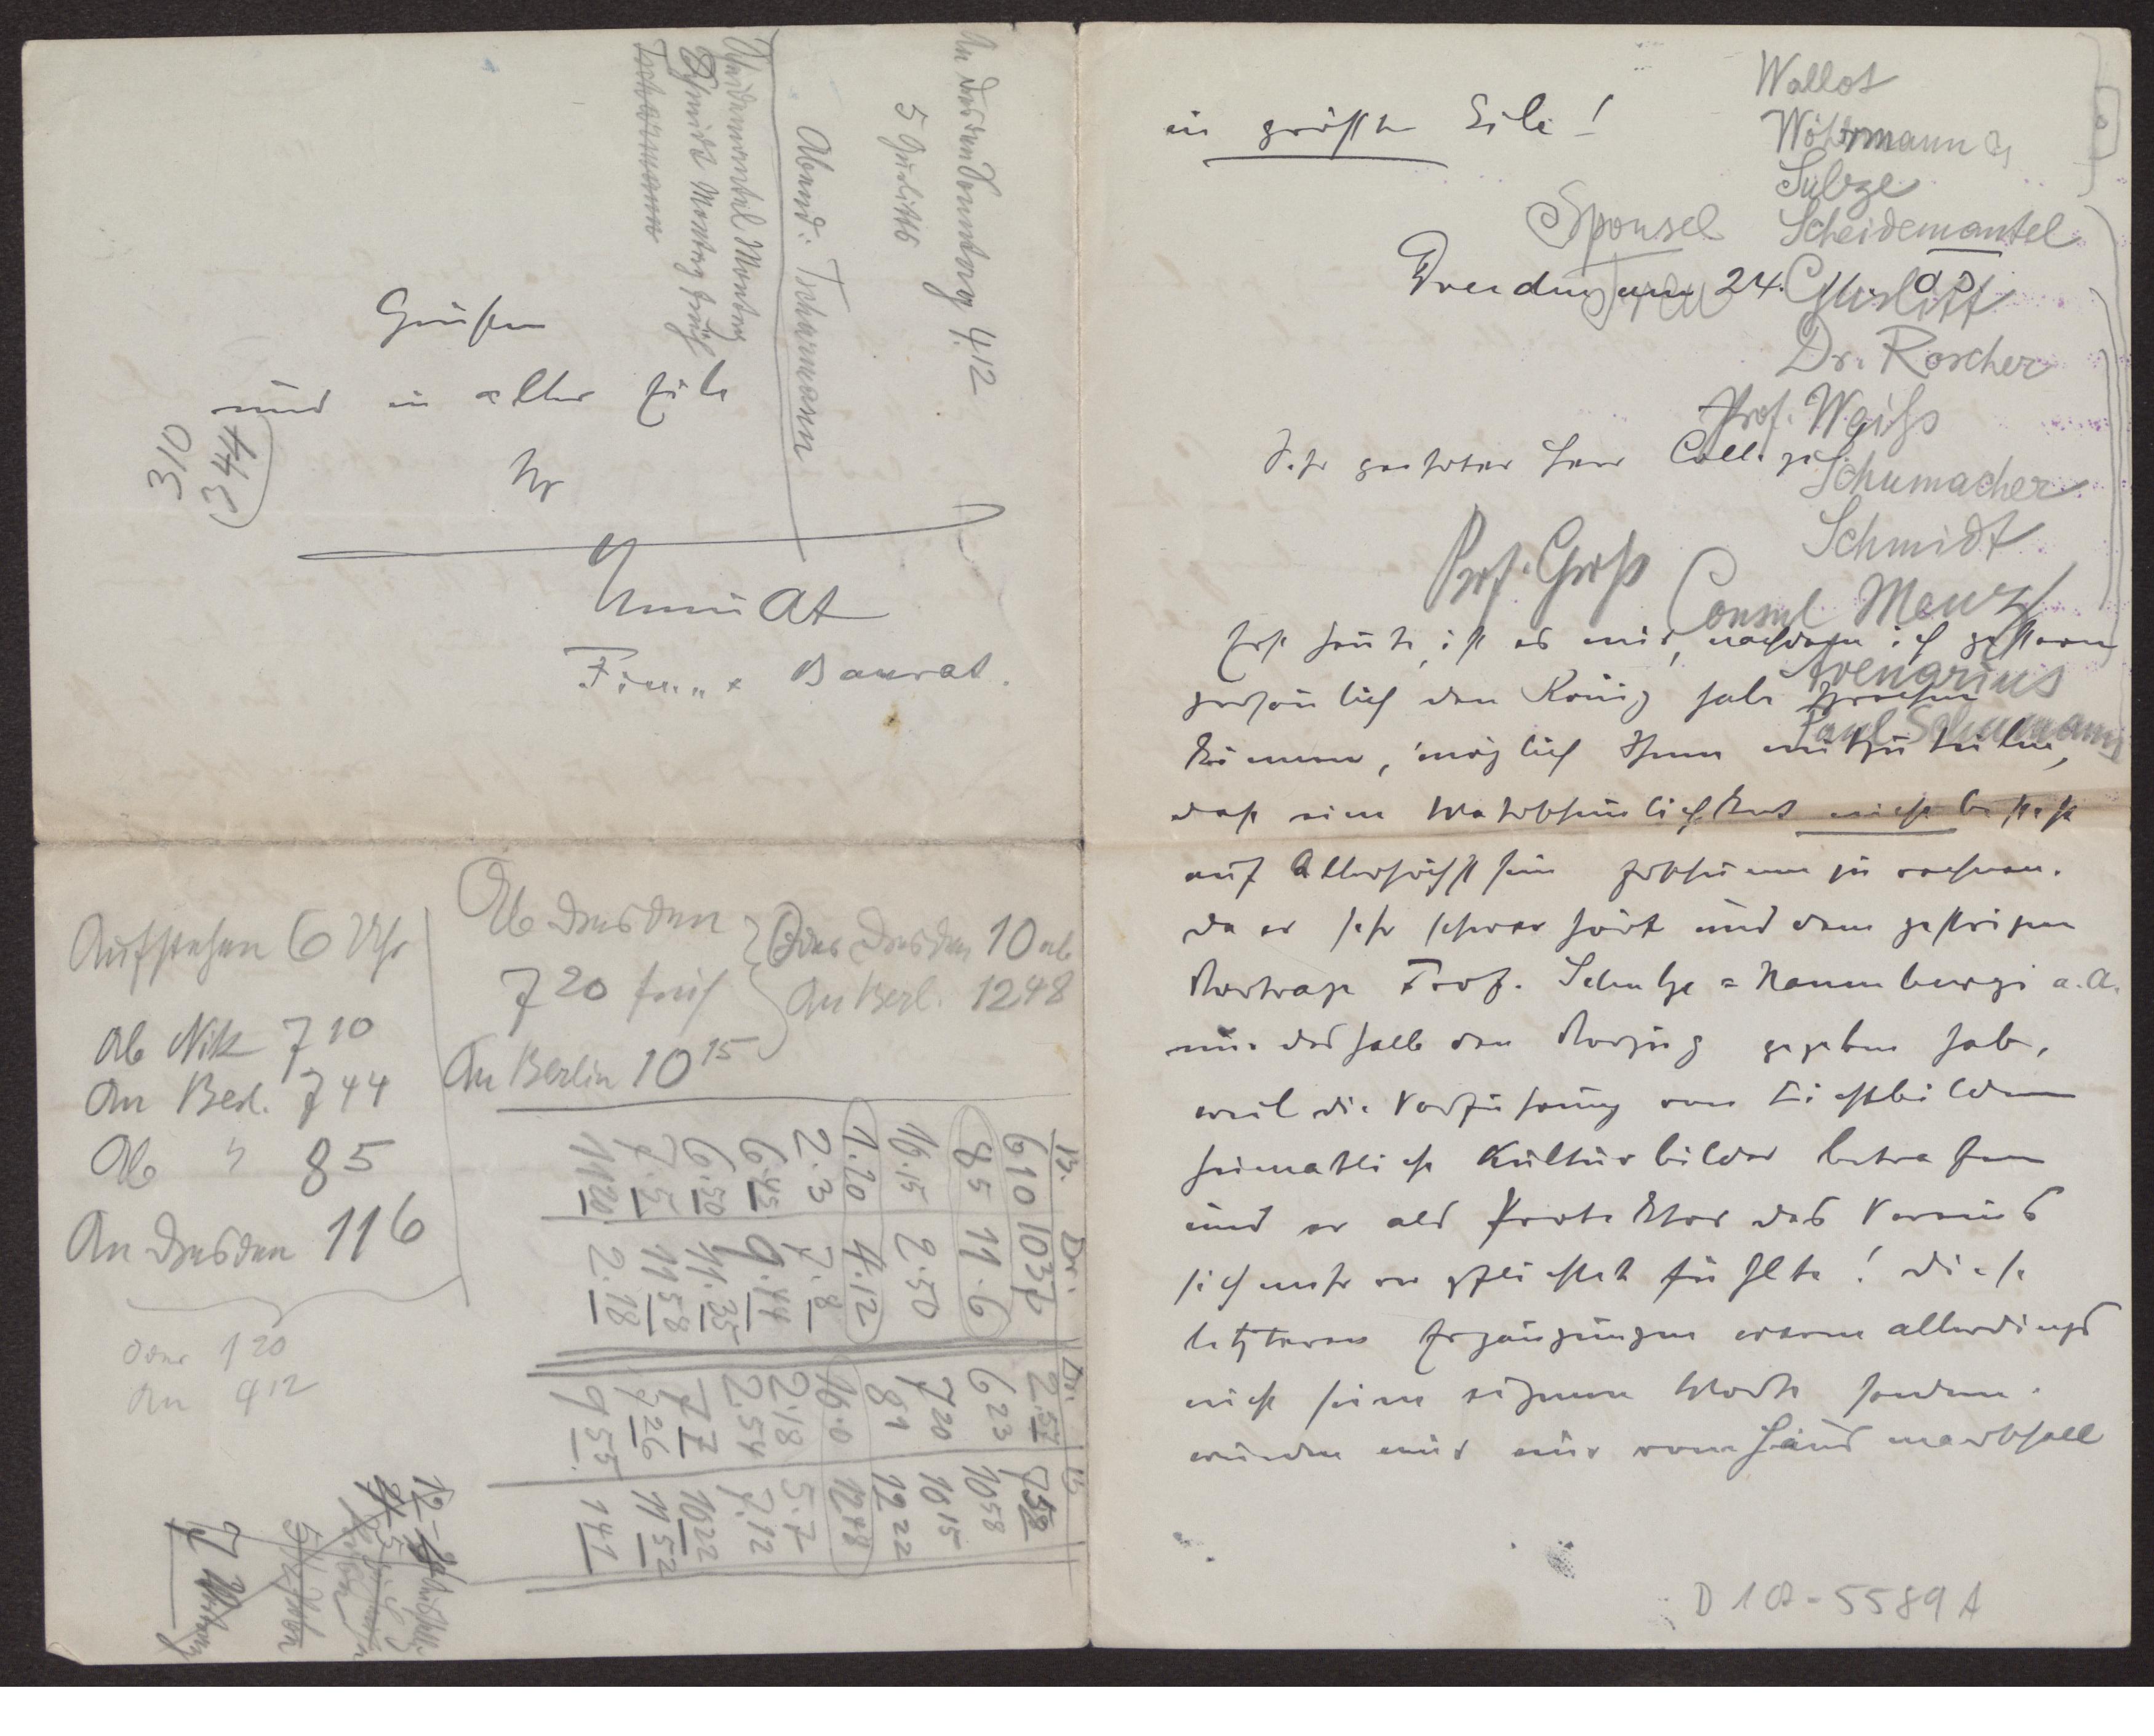 in größter Eile!
Wallot
Wörmann
Sulze
Sponsel Scheidemantel
Dresden am 24. 05
Treu Gurlitt
Dr. Roscher
Prof. Weißs
Sehr geehrter Herr College
Schumacher
Schmidt
Prof. Groß
Consul Menz
Erst heute ist es mir, nachdem ich gestern
Avenarius
persönlich den König habe sprechen
Paul Schumann
können, möglich Ihnen mitzuteilen,
daß eine Wahrscheinlichkeit nicht besteht
auf Allerhöchst sein Erscheinen zu rechnen.
da er sehr schwer hört und dem gestrigen
Vortrage Prof. Schultze=Naumburgs a. A.
nur deshalb den Vorzug gegeben habe,
weil die Vorführung von Lichtbildern
heimatliche Kulturbilder betrafen
und er als Protektor des Vereins
sich mehr verpflichtet fühlte! diese
letzteren Ergänzungen waren allerdings
nicht seine eigenen Worte sondern
wurden mir nur vom Hausmarschall
D 10-5589 A
Grüßen
und in aller Eile
Ihr
Baurat.
310
344
An Dresden Sonntag 4.12
5 Gurlitt
Abend: Tscharmann
Scheidemantel Montag
Schmidt Montag früh
Tscharmann
Aufstehen 6 Uhr
Ab Nik 7 10
An Berl. 7 44
Ab " 8 5
An Dresden 11 6
oder 1 20
An 4 12
Ab Dresden
7 20 früh
An Berlin 10 15
Oder Dresden 10 ab
An Berl. 12 48
B. Dr. Dr. B
6 10 10 37 2.57 7 52
8 5 11.6 6 23 10 58
10.15 2.50 7 20 10 15
1.20 4.12 8 1 12 22
2.3 7.8 10.0 12 48
6.45 9.44 2.18 5.7
6.50 11.35 2.54 7.12
7.5 11 58 7 7 10 22
11 20 2.18 7 26 11 52
9 55 1 41